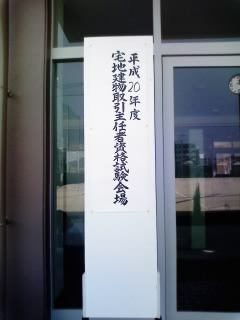 平成20年度
宅地建物取引主任者資格試験会場